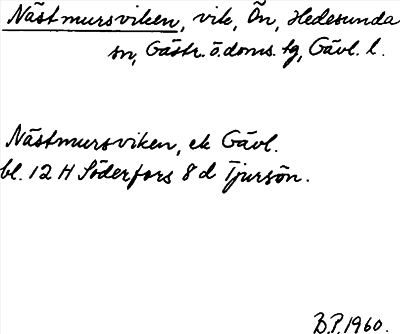 Nästmursviken, vik, Ön, Hedesunda
sn, Gästr. ö. doms. tg, Gävl. l.
Nästmursviken, ek Gävl.
bl. 12 H Söderfors 8 d Tjursön.
B.P. 1960.